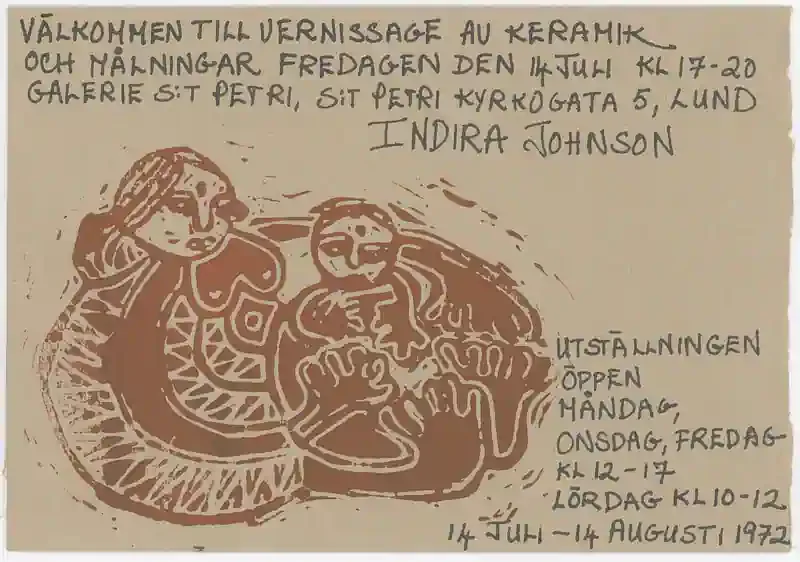 VÄLKOMMEN TILL VERNISSAGE AV KERAMIK
OCH MÅLNINGAR FREDAGEN DEN 14 JULI KL 17-20
GALERIE S:T PETRI, S:T PETRI KYRKOGATA 5, LUND
INDIRA JOHNSON
UTSTÄLLNINGEN
ÖPPEN
MÅNDAG,
ONSDAG, FREDAG
KL 12-17
LÖRDAG KL 10-12
14 JULI - 14 AUGUSTI 1972